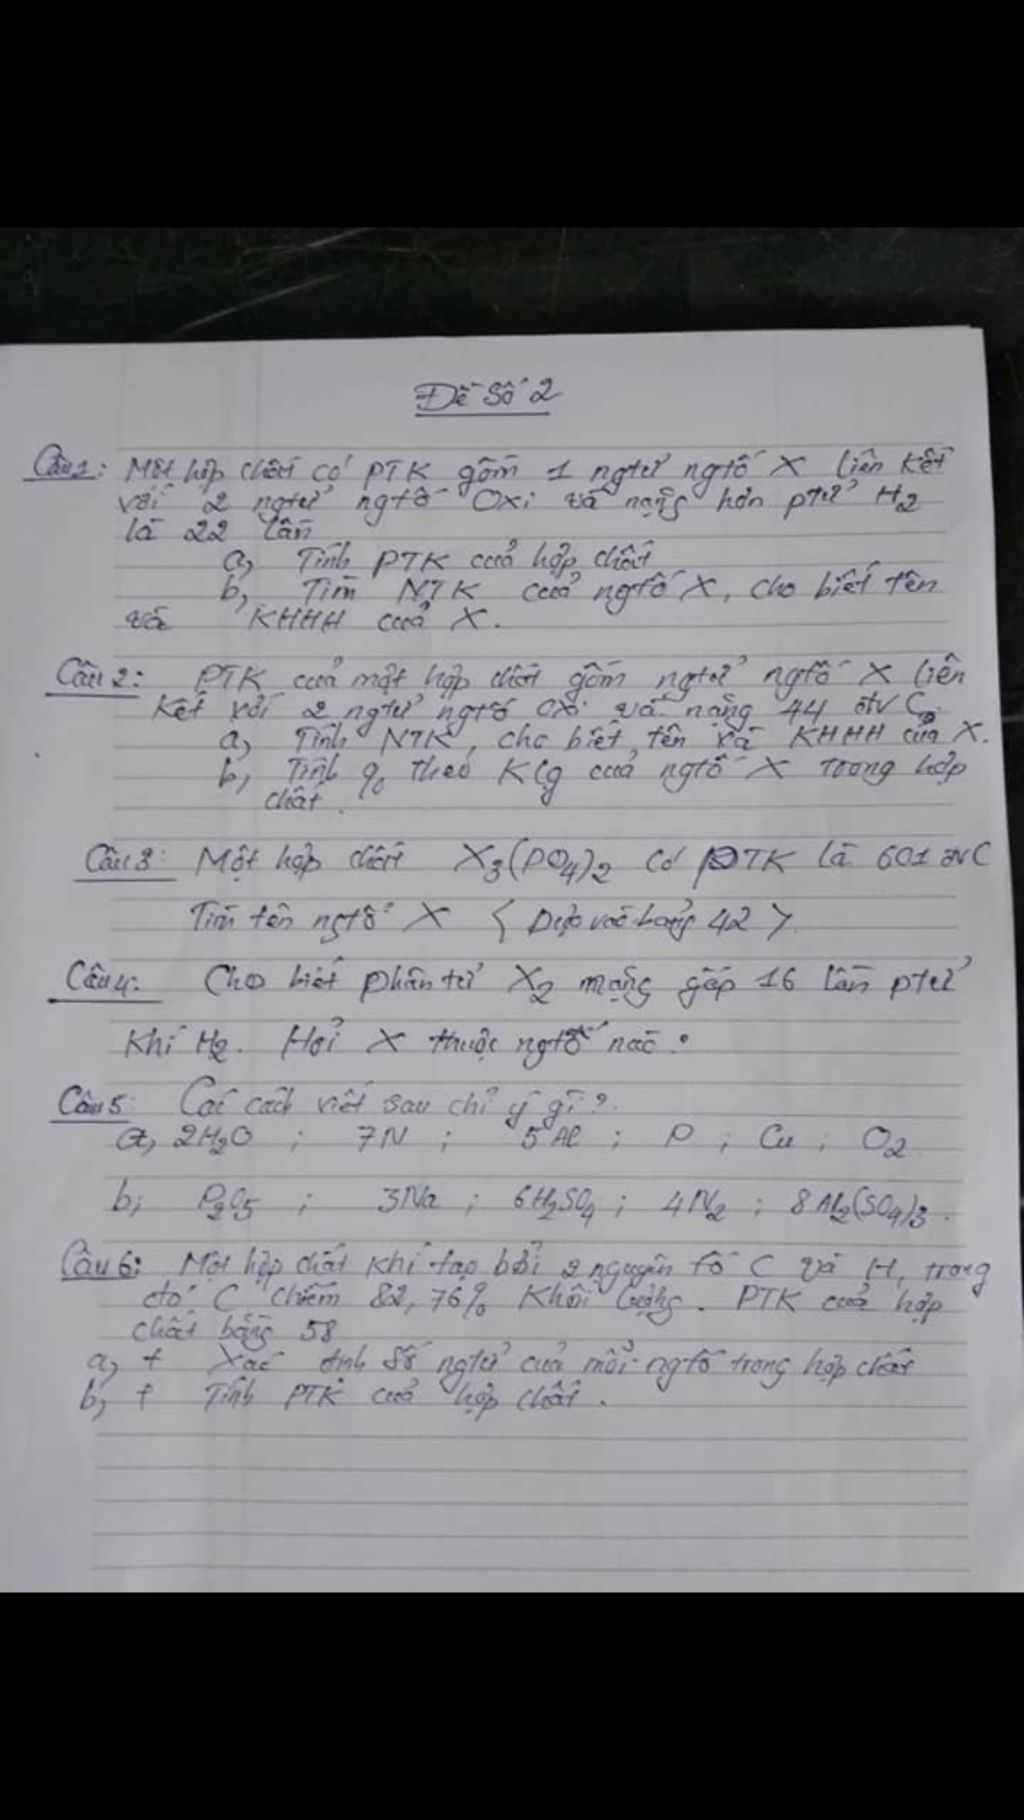 Đề Số 2
Câu 1: Một hợp chất có PTK gồm 1 ngtử ngtố X liên kết
với 2 ngtử ngtố Oxi và nặng hơn ptử H2
là 22 lần
a, Tính PTK của hợp chất
b, Tìm NTK của ngtố X, cho biết tên
và KHHH của X.
Câu 2: PTK của một hợp chất gồm ngtử ngtố X liên
kết với 2 ngtử ngtố Oxi và nặng 44 đvC.
a, Tính NTK, cho biết tên và KHHH của X.
b, Tính % theo Klg của ngtố X trong hợp
chất.
Câu 3: Một hợp chất X3(PO4)2 có PTK là 601 đvC
Tìm tên ngtố X < Dựa vào bảng 42 >
Câu 4: Cho biết phân tử X2 nặng gấp 16 lần ptử
khí H2. Hỏi X thuộc ngtố nào?
Câu 5: Các cách viết sau chỉ ý gì?
a, 2H2O ; 7N ; 5Al ; P ; Cu ; O2
b, P2O5 ; 3Na ; 6H2SO4 ; 4N2 ; 8Al2(SO4)3.
Câu 6: Một hợp chất khí tạo bởi 2 nguyên tố C và H, trong
đó C chiếm 82,76% khối lượng. PTK của hợp
chất bằng 58
a, + Xác định số ngtử của mỗi ngtố trong hợp chất
b, + Tính PTK của hợp chất.